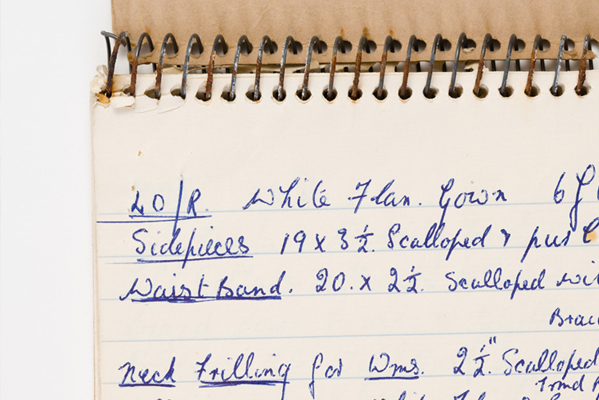 LO/R. White Flan. Gown 6
Sidepieces 19 x 3½. Scalloped &
Waist Band. 20. x 2½. Scalloped wi
Brai
Neck Frilling for Wms. 2½". Scalloped
Trmd